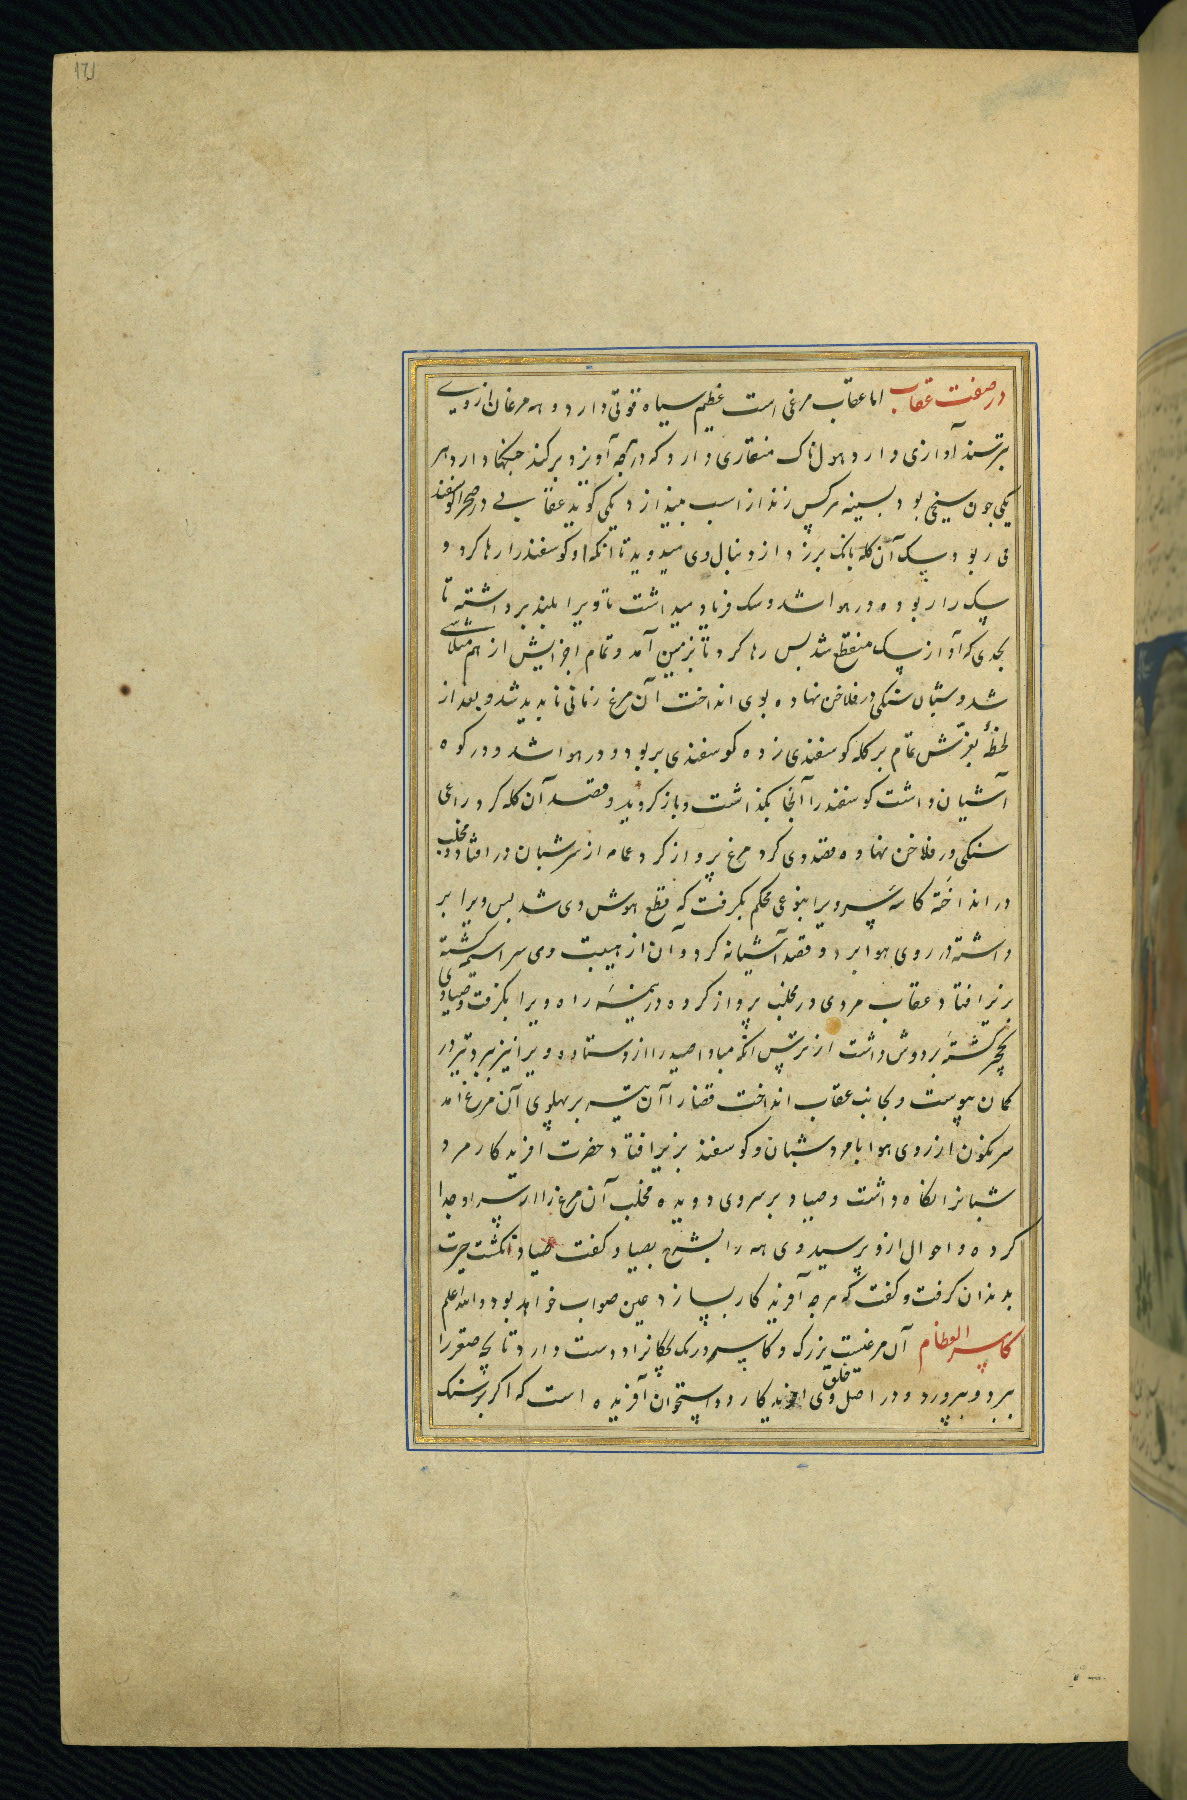 ۱۲۱
در صفت عقاب اما عقاب مرغی است عظیم سیاه قوتی دارد و همه مرغان از وی
بترسند آوازی دارد هول ناک منقاری دارد که در هرچه آویزد برکند چنکها دارد هر
یکی چون سیخی بود بسینه هر کس زند از اسب بیندازد یکی کوید عقابی در صحرا کوسفند
می ربود سک آن کله بانک برزد از دنبال وی میدوید تا انکه او کوسفند را رها کرد و
سک را ربوده در هوا شد و سک فریاد میداشت تا ویرا بلند برداشته تا
بحدی که آواز سک منقطع شد پس رها کرد تا بزمین آمد و تمام اجزایش از هم متلاشی
شد و شبان سنکی در فلاخن نهاده بوی انداخت آن مرغ زمانی ناپدید شد و بعد از
لحظهٔ بعزتش تمام بر کله کوسفندی زده کوسفندی بربود و در هوا شد و در کوه
آشیان داشت کوسفند را آنجا بکذاشت و باز کردید و قصد آن کله کرد راعی
سنکی در فلاخن نهاده قصد وی کرد مرغ پرواز کرد عمامه از سر شبان در افتاد و مخلب
در انداخته کاسه سر ویرا بنوعی محکم بکرفت که قطع هوش وی شد پس ویرا بر
داشته در روی هوا برد و قصد آشیانه کرد و آن از هیبت وی سراسیمه کشته
بزیر افتاد عقاب مردی در مخلب پرواز کرده در نیمهٔ راه ویرا بکرفت و صیادی
نخچیر کشتهٔ بر دوش داشت از ترس آنکه مبادا صید را از وستاده ویرا نیز ببرد تیر در
کمان پیوست و بجانب عقاب انداخت قضا را آن تیر بر پهلوی آن مرغ آمد
سرنکون از روی هوا با مرد شبان و کوسفند بزیر افتاد حضرت آفریدکار مرد
شبانرا نکاه داشت و صیاد بر سر وی دویده مخلب آن مرغ را از سر او جدا
کرده و احوال ازو پرسید وی همه را بشرح بصیاد کفت صیاد انکشت حیرت
بدندان کرفت و کفت که هرچه آفریدکار بسازد عین صواب خواهد بود والله اعلم
کاسر العظام آن مرغیست بزرک و کاسر ورک بچکانرا دوست دارد تا بچه صقر را
ببرد و بپرورد و در اصل خلق وی آفریدکار دو استخوان آفریده است که اکر بر سنک